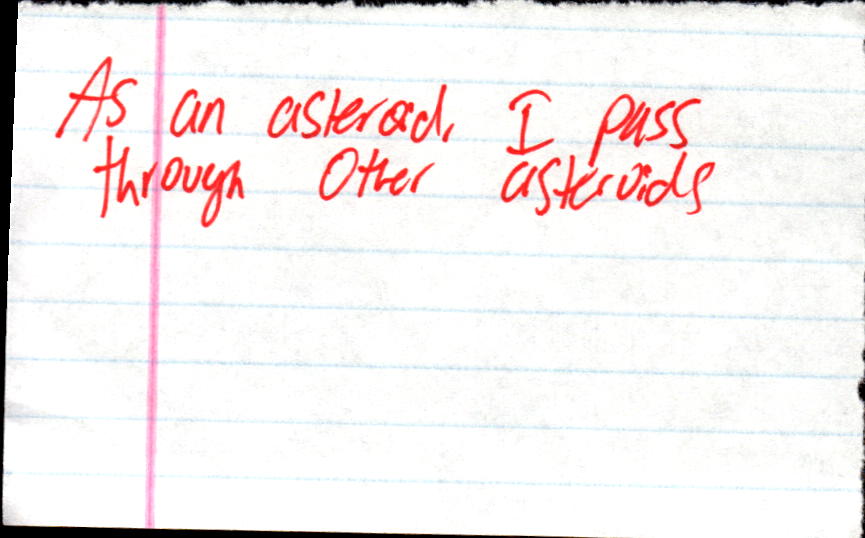 As an asteroid, I pass
through other asteroids